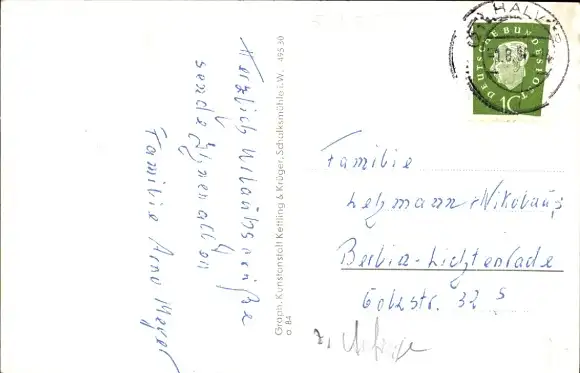 Herzlich Urlaubsgrüße
sende Ihnen allen
Familie Arno Meyer
Graph. Kunstanstalt Kettling & Krüger, Schalksmühle i. W. 49530
a 84
HALVER
DEUTSCHE BUNDESPOST
10
Familie
Lehmann + Nikolaus
Berlin-Lichtenrade
Golzstr. 32 s